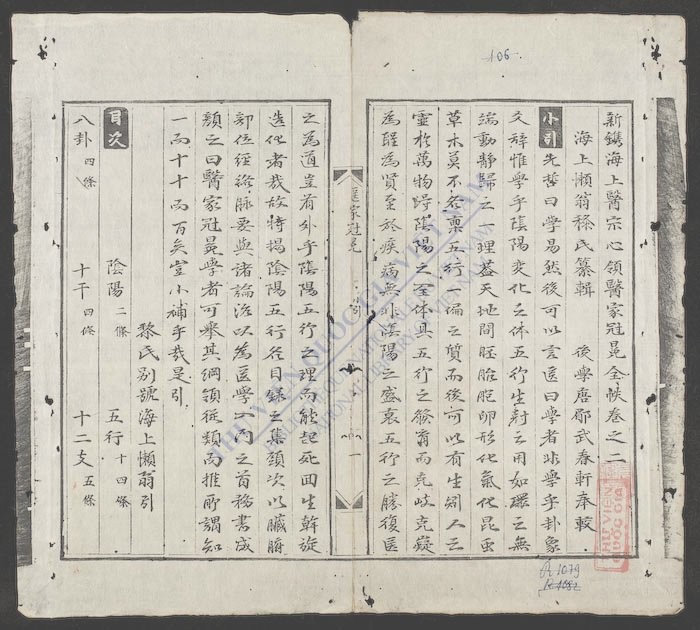 新鐫海上醫宗心領醫家冠冕全帙卷之二
海上懶翁黎氏纂輯 後學唐郿武春軒奉較
小引 先哲曰學易然後可以言医曰學者非學乎卦象
爻辞惟學乎陰陽变化之体五行生尅之用如環之無
端動静歸之一理蓋天地間胚胎胞卵形化氣化昆虫
草木莫不各禀五行一偏之質而後可以有生矧人之
靈於萬物得陰陽之全体具五行之發育而克岐克嶷
為聖為賢至於疾病無非陰陽之盛衰五行之勝復医
之為道豈有外乎陰陽五行之理而能起死回生斡旋
造化者哉故特揭陰陽五行各目録之集類次以臟腑
部位經絡脉要與諸論治以為医學入門之首務書成
顏之曰醫家冠冕學者可舉其綱領從類而推所謂知
一而十十而百矣豈小補乎哉是引
黎氏别號海上懶翁引
目次 陰陽 二條 五行 十四條
八卦 四條 十干 四條 十二支 五條
醫家冠冕 小引 一
106
THƯ VIỆN
QUỐC GIA
R.1079
R.1082
THƯ VIỆN QUỐC GIA VIỆT NAM
NATIONAL LIBRARY OF VIETNAM